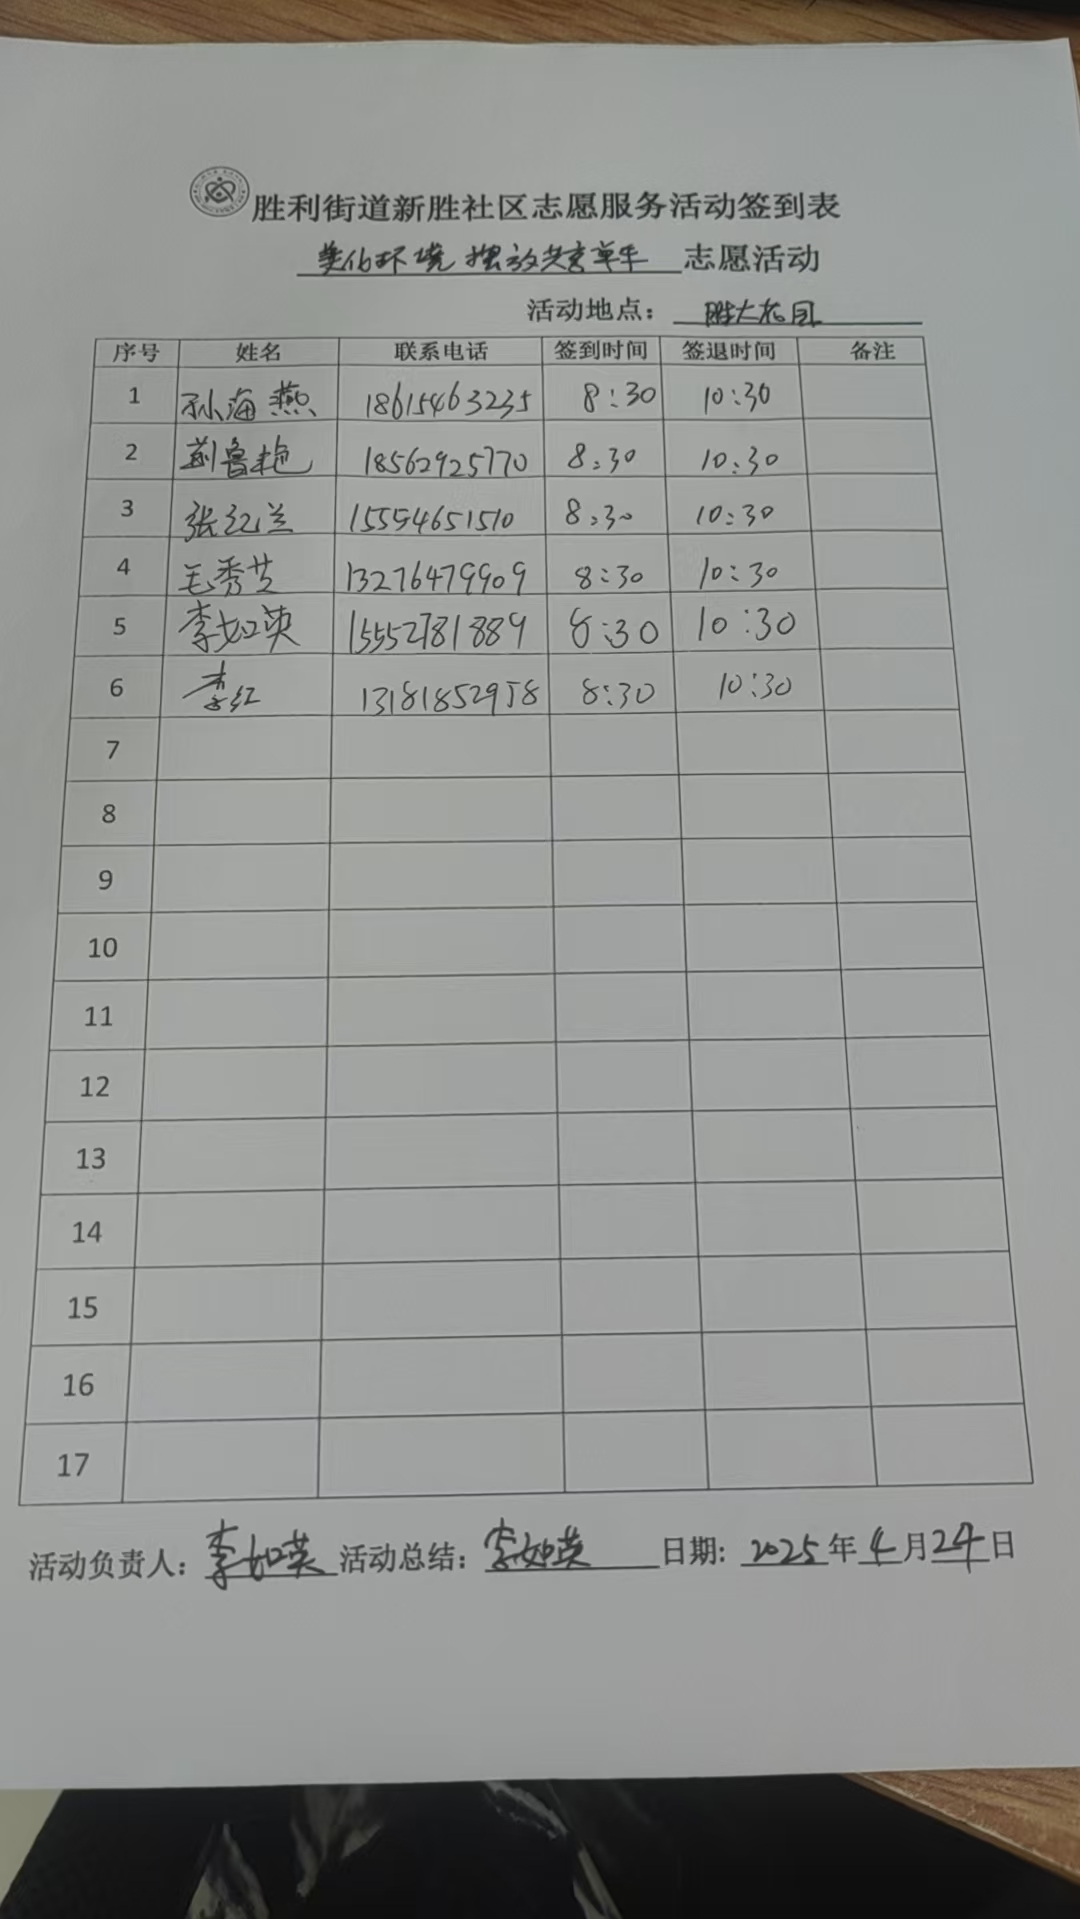 胜利街道新胜社区志愿服务活动签到表
美化环境 摆放共享单车 志愿活动
活动地点：胜大花园
序号 姓名 联系电话 签到时间 签退时间 备注
1 孙海燕 18615463235 8:30 10:30
2 荆鲁艳 18562925770 8:30 10:30
3 张纪兰 15554651510 8:30 10:30
4 毛秀芝 13276479909 8:30 10:30
5 李如英 15552781889 8:30 10:30
6 李红 13181852958 8:30 10:30
7
8
9
10
11
12
13
14
15
16
17
活动负责人：李如英 活动总结：李如英 日期：2025年4月24日